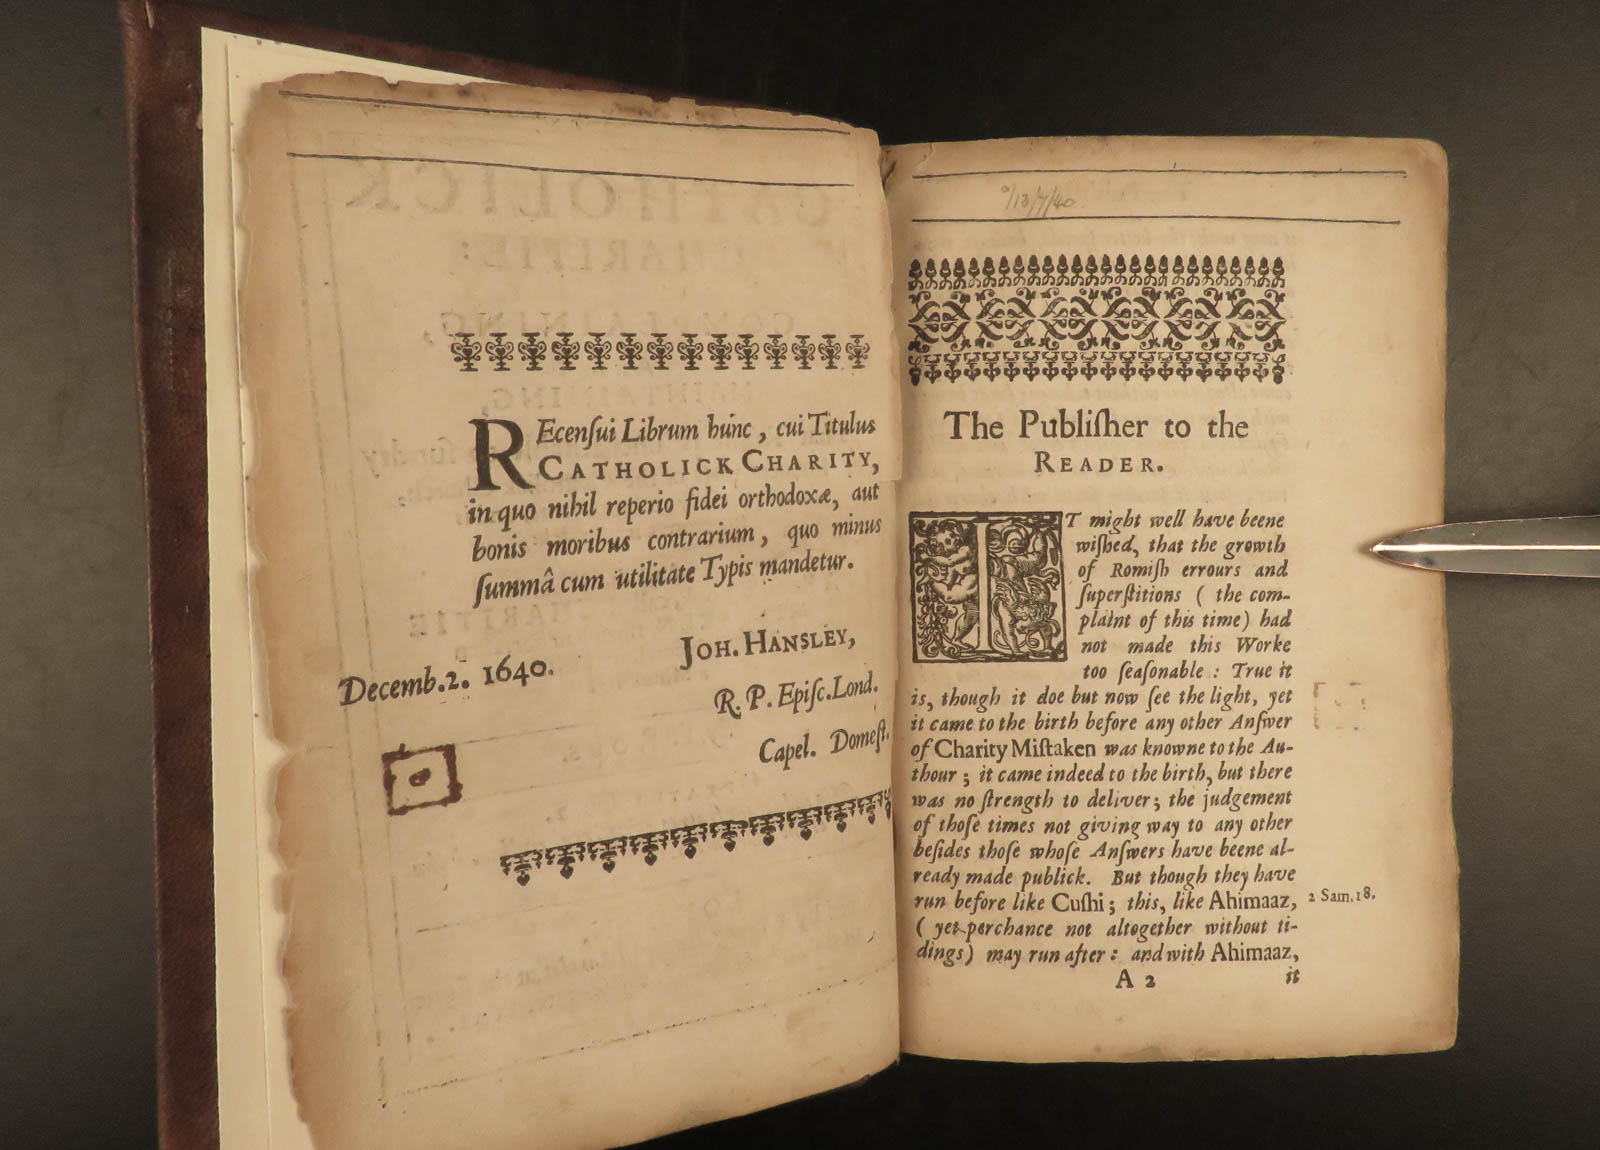 REcenſui Librum hunc, cui Titulus
CATHOLICK CHARITY,
in quo nihil reperio fidei orthodoxæ, aut
bonis moribus contrarium, quo minus
ſummâ cum utilitate Typis mandetur.
JOH. HANSLEY,
Decemb. 2. 1640.
R. P. Epiſc. Lond.
Capel. Domeſt.
13/7/40
The Publiſher to the
READER.
IT might well have beene
wiſhed, that the growth
of Romiſh errours and
ſuperſtitions ( the com-
plaint of this time) had
not made this Worke
too ſeaſonable : True it
is, though it doe but now ſee the light, yet
it came to the birth before any other Anſwer
of Charity Miſtaken was knowne to the Au-
thour ; it came indeed to the birth, but there
was no ſtrength to deliver ; the judgement
of thoſe times not giving way to any other
beſides thoſe whoſe Anſwers have beene al-
ready made publick. But though they have
run before like Cuſhi ; this, like Ahimaaz,
2 Sam. 18.
( yet perchance not altogether without ti-
dings) may run after : and with Ahimaaz,
A 2
it